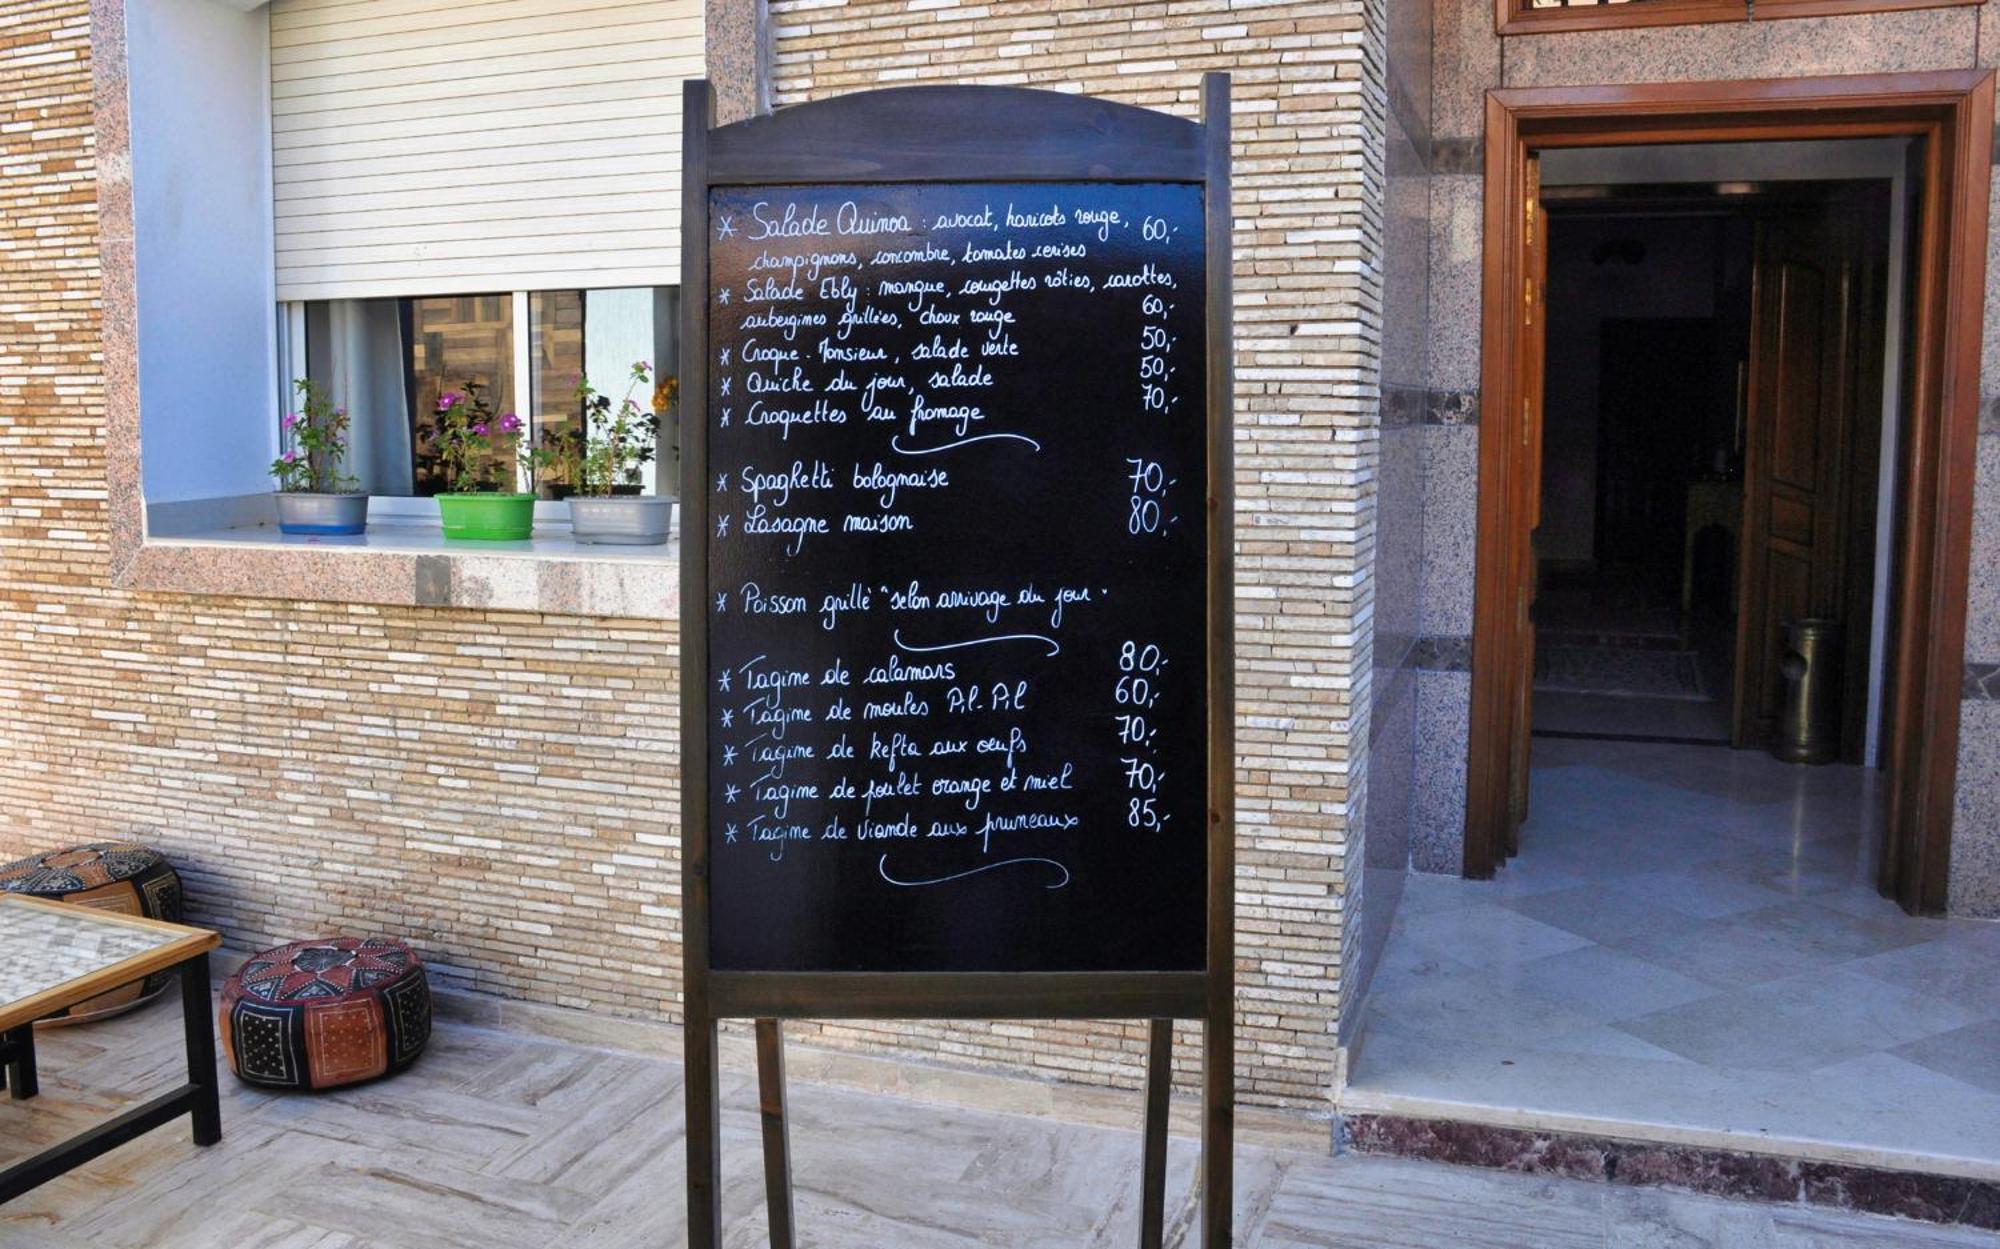 * Salade Quinoa : avocat, haricots rouge, 60,-
champignons, concombre, tomates cerises
* Salade Ebly : mangue, courgettes rôties, carottes,
aubergines grillées, choux rouge 60,-
* Croque-Monsieur, salade verte 50,-
* Quiche du jour, salade 50,-
* Croquettes au fromage 70,-
* Spaghetti bolognaise 70,-
* Lasagne maison 80,-
* Poisson grillé "selon arrivage du jour"
* Tagine de calamars 80,-
* Tagine de moules Pil-Pil 60,-
* Tagine de kefta aux oeufs 70,-
* Tagine de poulet orange et miel 70,-
* Tagine de viande aux pruneaux 85,-